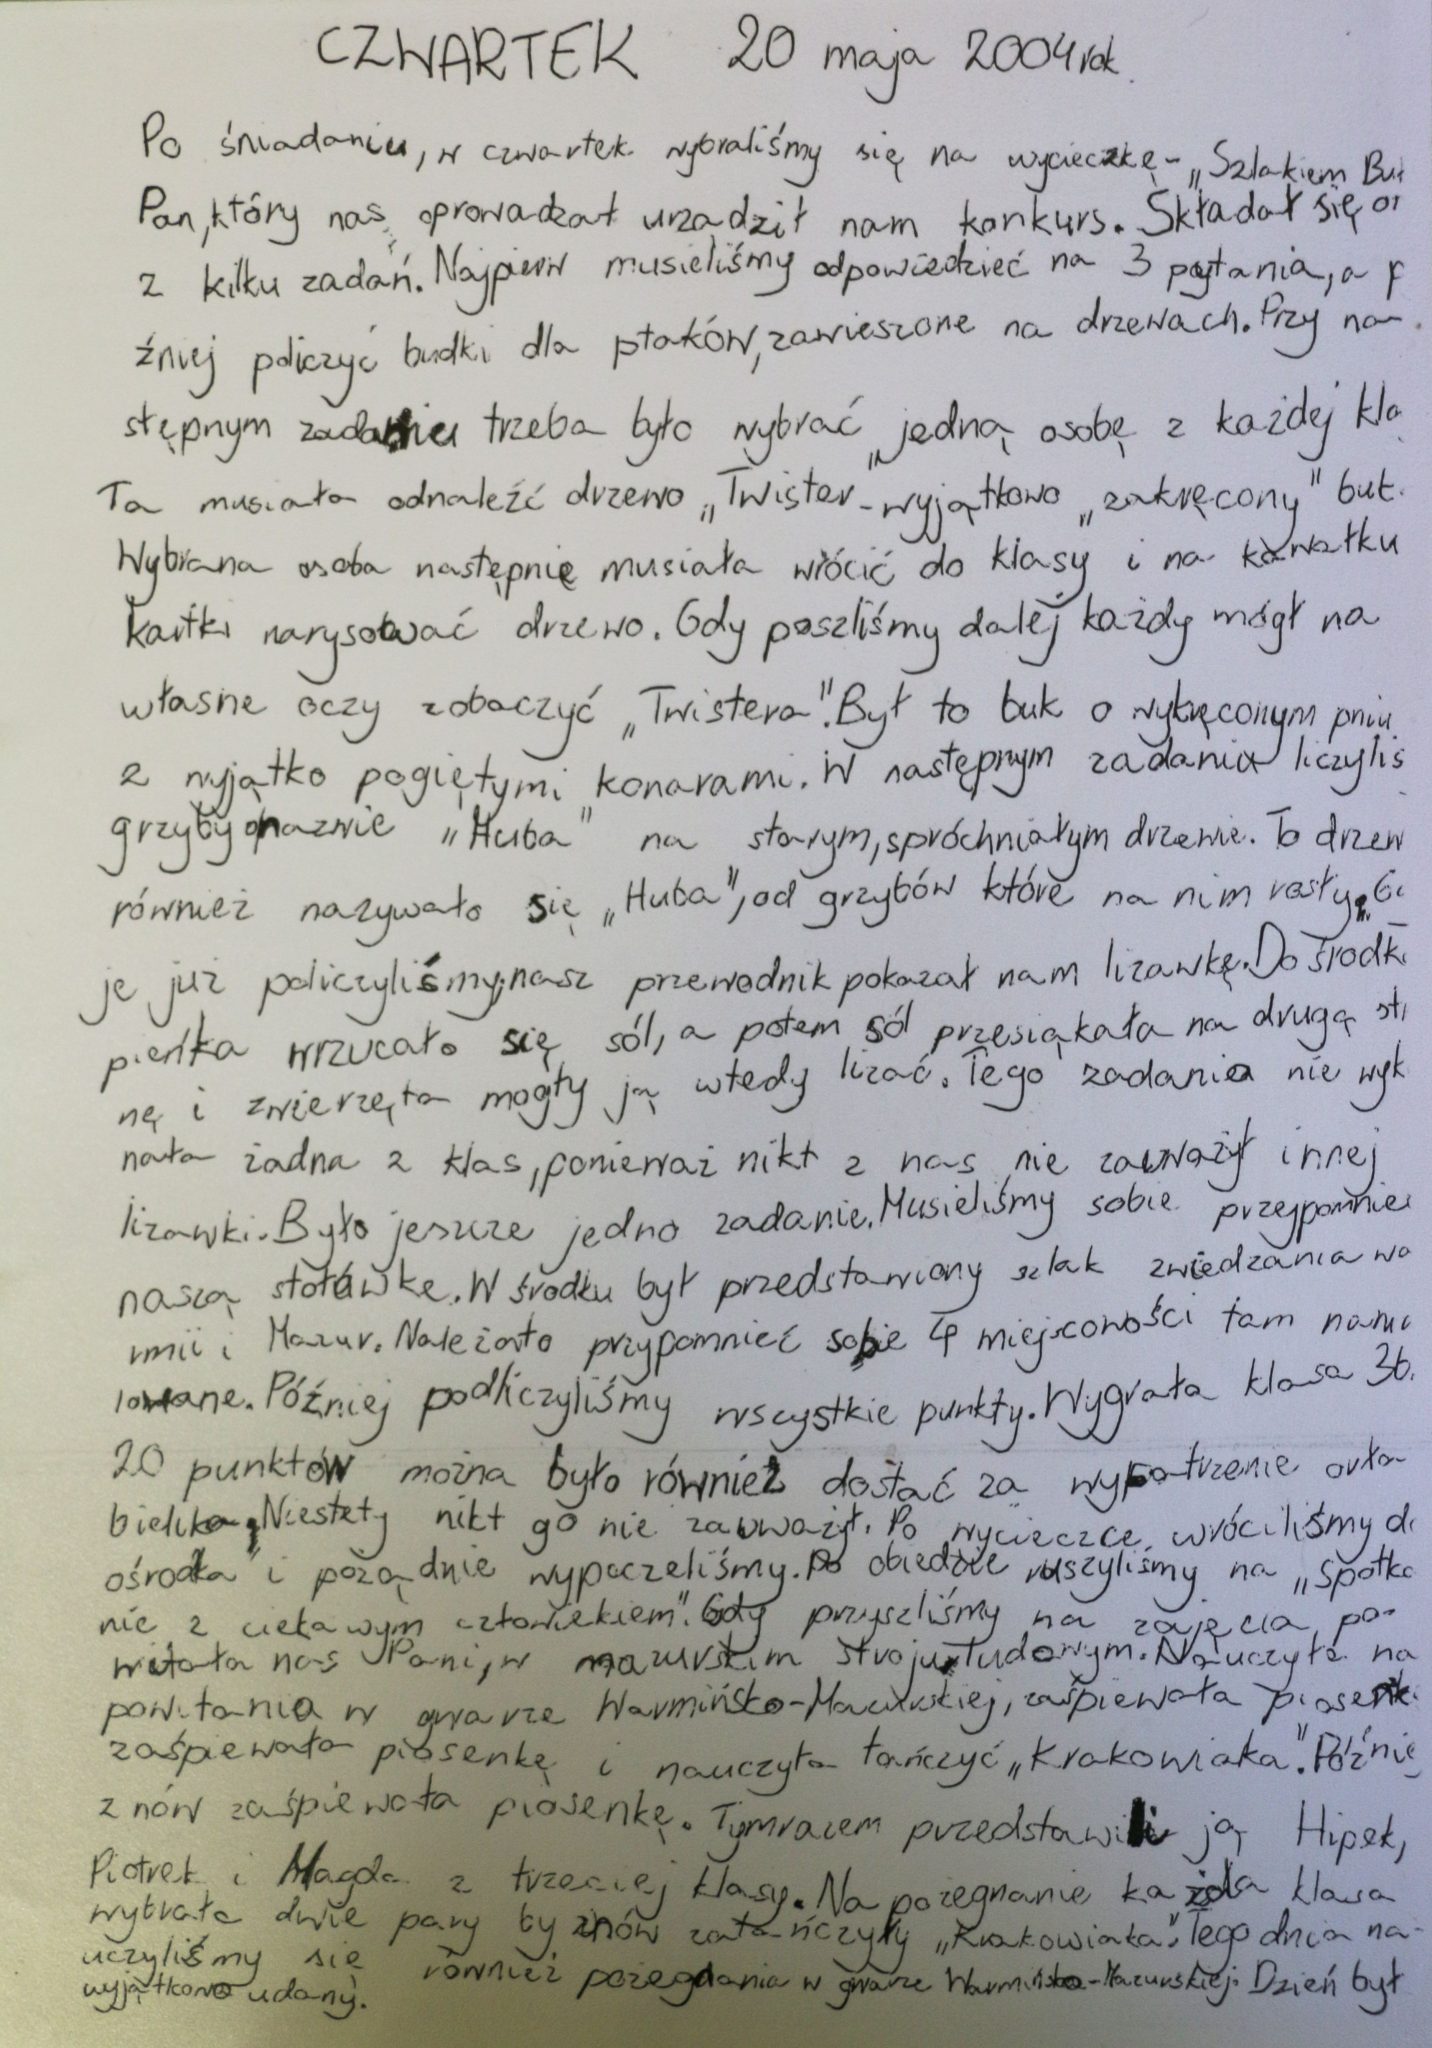 CZWARTEK 20 maja 2004rok.
Po śniadaniu, w czwartek wybraliśmy się na wycieczkę - „Szlakiem Buk
Pan, który nas oprowadzał urządził nam konkurs. Składał się on
z kilku zadań. Najpierw musieliśmy odpowiedzieć na 3 pytania, a p
źniej policzyć budki dla ptaków, zawieszone na drzewach. Przy na-
stępnym zadaniu trzeba było wybrać jedną osobę z każdej kla
Ta musiała odnaleźć drzewo „Twister - wyjątkowo „zakręcony" buk.
Wybrana osoba następnie musiała wrócić do klasy i na kawałku
kartki narysować drzewo. Gdy poszliśmy dalej każdy mógł na
własne oczy zobaczyć „Twistera". Był to buk o wykręconym pniu
z wyjątko pogiętymi konarami. W następnym zadaniu liczyliś
grzyby o nazwie „Huba" na starym, spróchniałym drzewie. To drzew
również nazywało się „Huba", od grzybów które na nim rosły. G
je już policzyliśmy, nasz przewodnik pokazał nam lizawkę. Do środk
pieńka wrzucało się sól, a potem sól przesiąkała na drugą st
nę i zwierzęta mogły ją wtedy lizać. Tego zadania nie wyk
nała żadna z klas, ponieważ nikt z nas nie zauważył innej
lizawki. Było jeszcze jedno zadanie. Musieliśmy sobie przypomnie
naszą stołówkę. W środku był przedstawiony szlak zwiedzania wa
rmii i Mazur. Należało przypomnieć sobie 4 miejscowości tam nama
lowane. Później podliczyliśmy wszystkie punkty. Wygrała klasa 3b.
20 punktów można było również dostać za wypatrzenie orła
bielika. Niestety nikt go nie zauważył. Po wycieczce wróciliśmy d
ośrodka i pożądnie wypoczeliśmy. Po obiedzie ruszyliśmy na „Spotka
nie z ciekawym człowiekiem". Gdy przyszliśmy na zajęcia po-
witała nas Pani, w mazurskim stroju ludowym. Nauczyła na
powitania w gwarze Warmińsko-Mazurskiej, zaśpiewała piosenk
zaśpiewała piosenkę i nauczyła tańczyć „Krakowiaka". Późnie
znów zaśpiewała piosenkę. Tymrazem przedstawili ją Hipek,
Piotrek i Magda z trzeciej klasy. Na pożegnanie każda klasa
wybrała dwie pary by znów zatańczyły „Krakowiaka". Tego dnia na-
uczyliśmy się również pożegdania w gwarze Warmińsko-Mazurskiej. Dzień był
wyjątkowo udany.